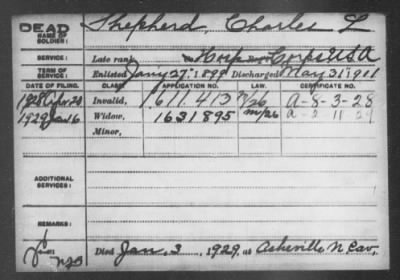 DEAD
NAME OF SOLDIER: Shepherd, Charles L
SERVICE: Late rank, Hosp Corps USA
TERM OF SERVICE: Enlisted Jan'y 27, 1899 Discharged May 31, 1911
DATE OF FILING. CLASS. APPLICATION NO. LAW. CERTIFICATE NO.
1928 Apr. 28 Invalid, 1611.413 A-8-3-28
1929 Jan 16 Widow, 1631895 A-2-11-29
Minor,
ADDITIONAL SERVICES:
REMARKS:
Died Jan. 3, 1929, at Asheville N. Car,